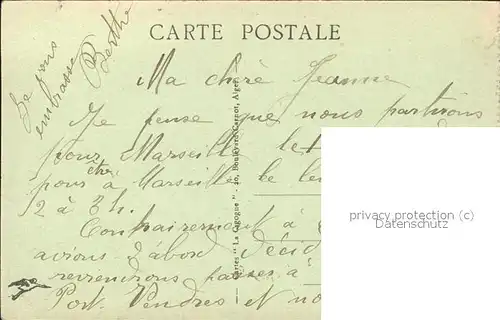 CARTE POSTALE
Je vous
embrasse
Berthe
Ma chère Jeanne
Je pense que nous partirons
pour Marseille le
pour être à Marseille le
2 à 3 h.
Contrairement à
avions d'abord décid
reviendrons passer à
Port. Vendres et no
"La Cigogne" - 20, Boulevard Carnot, Alger
privacy protection (c)
Datenschutz